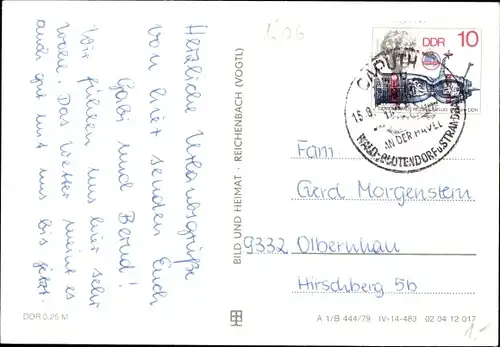 Herzliche Urlaubsgrüße
von hier senden Euch
Gabi und Bernd!
Wir fühlen uns hier sehr
wohl. Das Wetter meint es
auch gut mit uns bis jetzt.
DDR 0,25 M
BILD UND HEIMAT · REICHENBACH (VOGTL)
DDR 10
CAPUTH
AN DER HAVEL
WALD-, BLÜTENDORF u. STRANDBAD
Fam.
Gerd Morgenstern
9332 Olbernhau
Hirschberg 5b
A 1/B 444/79 IV-14-483 02 04 12 017
1.-